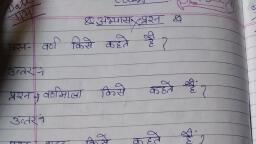 अभ्यास प्रश्न
प्रश्न- वर्ण किसे कहते हैं ?
उत्तर→
प्रश्न→ वर्णमाला किसे कहते हैं ?
उत्तर→
किसे कहते हैं ?